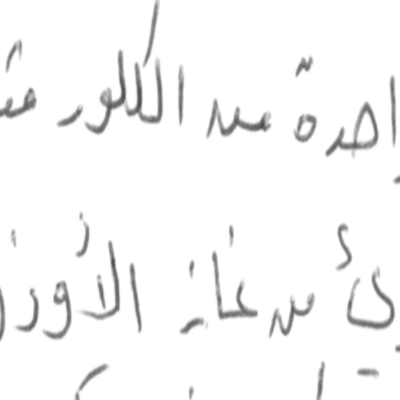 احدة من الكلور مت
ئ من غاز الأوزو